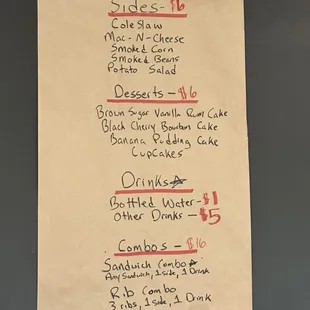 Sides - $6
Coleslaw
Mac-N-Cheese
Smoked Corn
Smoked Beans
Potato Salad
Desserts - $6
Brown Sugar Vanilla Rum Cake
Black Cherry Bourbon Cake
Banana Pudding Cake
Cupcakes
Drinks
Bottled Water - $1
Other Drinks - $5
Combos - $16
Sandwich Combo
Any Sandwich, 1 side, 1 Drink
Rib Combo
3 ribs, 1 side, 1 Drink